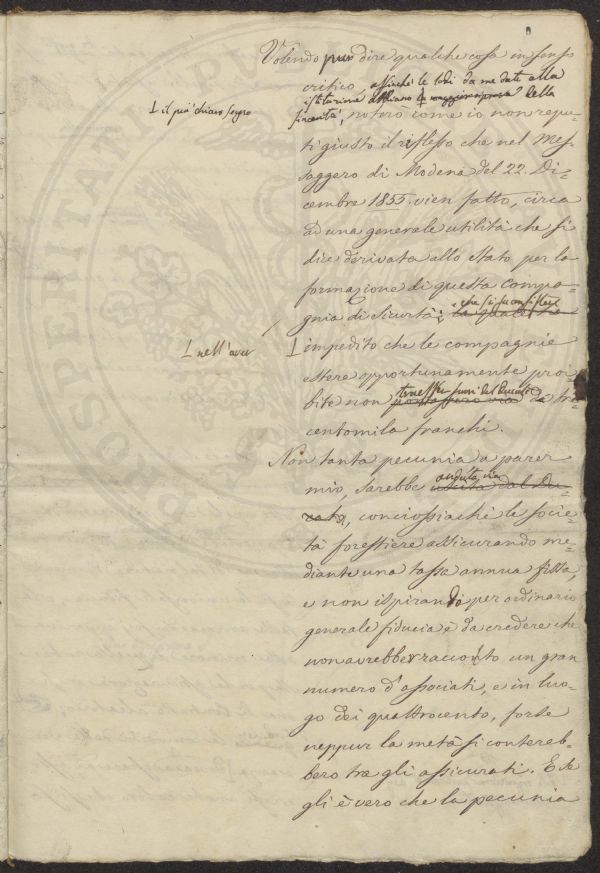 Volendo pur dire qualche cosa in senso
critico, affinchè le lodi da me date alla
istituzione abbiano
⊥ il più chiaro segno
della
sincerità, noterò come io non repu-
ti giusto il riflesso che nel Mes-
saggero di Modena del 22. Di-
cembre 1855. vien fatto, circa
ad una generale utilità che si
dice derivata allo Stato per la
formazione di questa Compa-
gnia di Sicurtà;
che si fa consistere
⊥ nell'aver
⊥ impedito che le compagnie
estere opportunamente proi-
bite non portassero via da tre-
centomila franchi.
Non tanta pecunia a parer
mio, sarebbe uscita dal Du-
andata via
cato, conciossiachè le socie-
tà forestiere assicurando me-
diante una tassa annua fissa,
e non ispirando per ordinario
generale fiducia è da credere che
non avrebber raccolto un gran
numero d'associati, e in luo-
go dei quattrocento, forse
neppur la metà si conterreb-
bero tra gli assicurati. E se
gli è vero che la pecunia